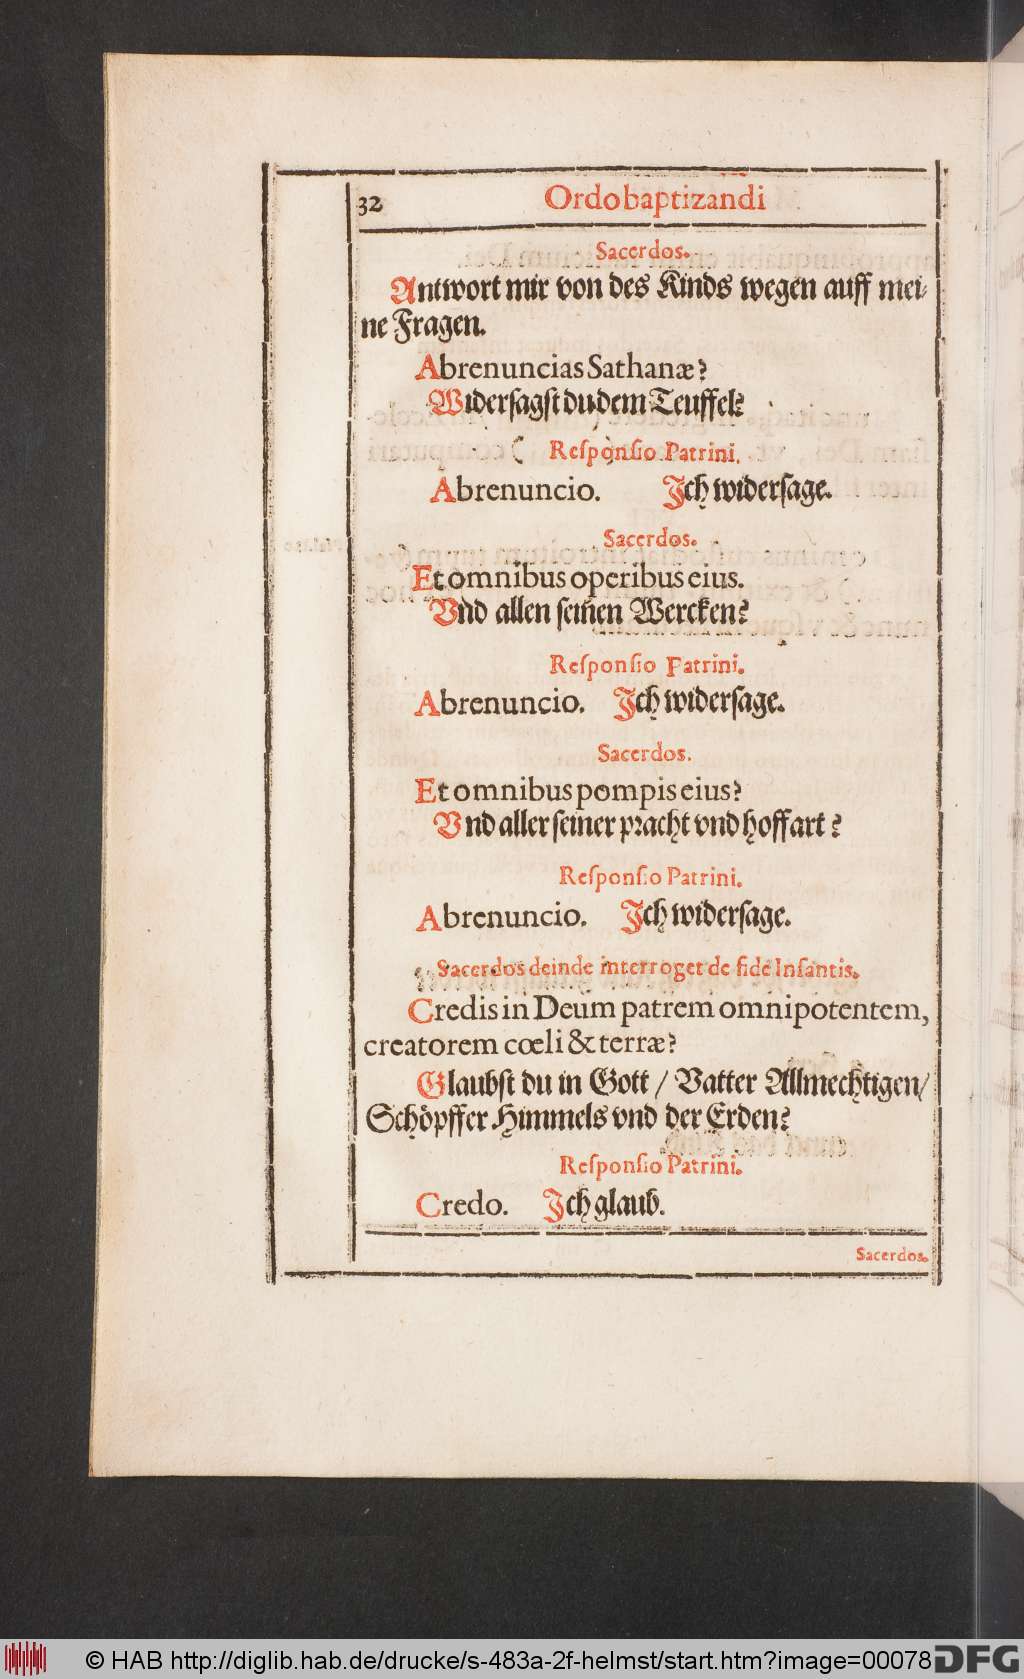 32 Ordo baptizandi
Sacerdos.
Antwort mir von des Kinds wegen auff mei-
ne Fragen.
Abrenuncias Sathanæ?
Widersagst du dem Teuffel?
Responsio Patrini.
Abrenuncio. Ich widersage.
Sacerdos.
Et omnibus operibus eius.
Vnd allen seinen Wercken?
Responsio Patrini.
Abrenuncio. Ich widersage.
Sacerdos.
Et omnibus pompis eius?
Vnd aller seiner pracht vnd hoffart?
Responsio Patrini.
Abrenuncio. Ich widersage.
Sacerdos deinde interroget de fide Infantis.
Credis in Deum patrem omnipotentem,
creatorem cœli & terræ?
Glaubst du in Gott / Vatter Allmechtigen/
Schöpffer Himmels vnd der Erden?
Responsio Patrini.
Credo. Ich glaub.
Sacerdos.
© HAB http://diglib.hab.de/drucke/s-483a-2f-helmst/start.htm?image=00078 DFG